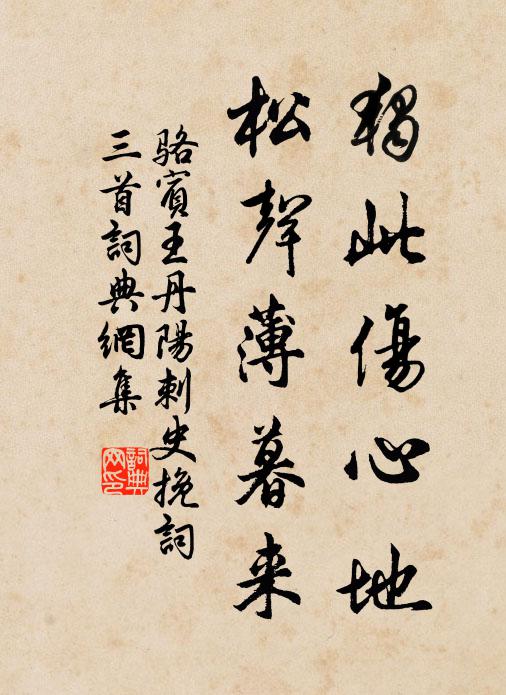 獨此傷心地
松聲薄暮来
駱賓王丹陽刺史挽詞
三首詞典網集
詞典
网印